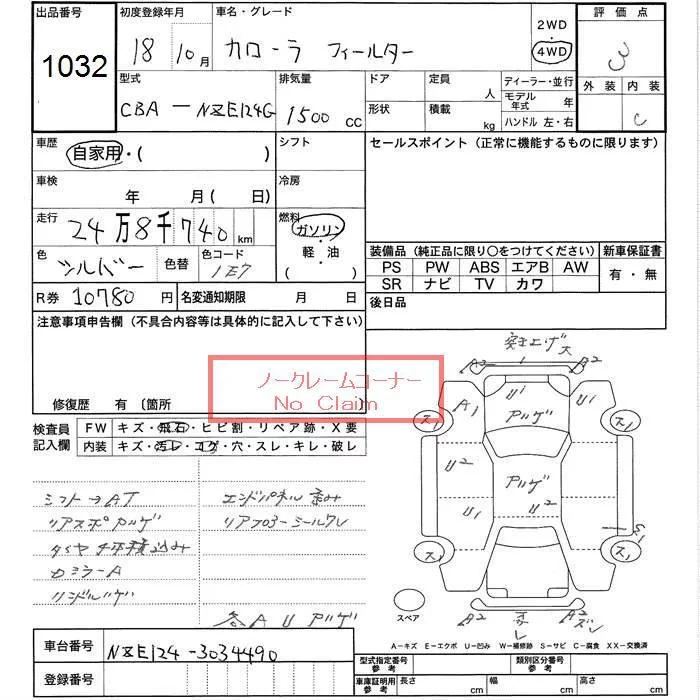 出品番号 初度登録年月 車名・グレード 2WD 評価点
1032 18 10月 カローラ フィールター 4WD 3
型式 排気量 ドア 定員 人 ディーラー・並行 外装 内装
CBA-NZE124G 1500 CC 形状 積載 kg モデル年式 年 C
ハンドル 左・右
車歴 自家用・( ) シフト セールスポイント(正常に機能するものに限ります)
車検 年 月( 日) 冷房
走行 24万8千740km 燃料 ガソリン・軽・油( )
色 シルバー 色替 色コード 1E7
装備品(純正品に限り○をつけてください) 新車保証書
PS PW ABS エアB AW 有・無
SR ナビ TV カワ
R券 10780円 名変通知期限 月 日 後日品
注意事項申告欄(不具合内容等は具体的に記入して下さい)
ノークレームコーナー
No Claim
修復歴 有〔箇所 〕
検査員記入欄 FW キズ・飛石・ヒビ割・リペア跡・X要
内装 キズ・汚レ・コゲ・穴・スレ・キレ・破レ
シフト→AT エンドパネル 済み
リアスポ アルゲ リアフロアーシールワレ
タイヤ4本積込み
カミラーA
ハンドルハゲ
各AUアルゲ
突き上げ大
A2 A2
A1 U1 U1
アルゲ
ス1 ス1
U2 アルゲ
U1 U2
S1
ス1 ス1
スペア A2 A2
A-キズ E-エクボ U-凹み W-補修跡 S-サビ C-腐食 XX-交換済
車台番号 NZE124-3034490
登録番号
型式指定番号 参考 類別区分番号 参考
車庫証明用 参考 長さ cm 幅 cm 高さ cm